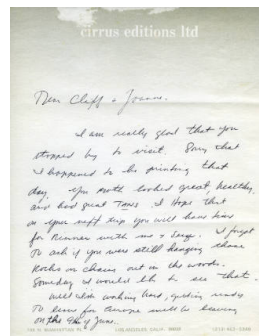 cirrus editions ltd
Dear Cliff & Joanne.
I am really glad that you
stopped by to visit. Sorry that
I happened to be printing that
day. You both looked great, healthy,
and had great Tans. I Hope that
on your next trip you will have time
for Dinner with me &
I forgot
To ask if you were still hanging those
Rocks on chains out in the woods.
Someday I would like to see that
working Hard, getting ready
To leave for Europe will be leaving
on the 9th of June.
LOS ANGELES